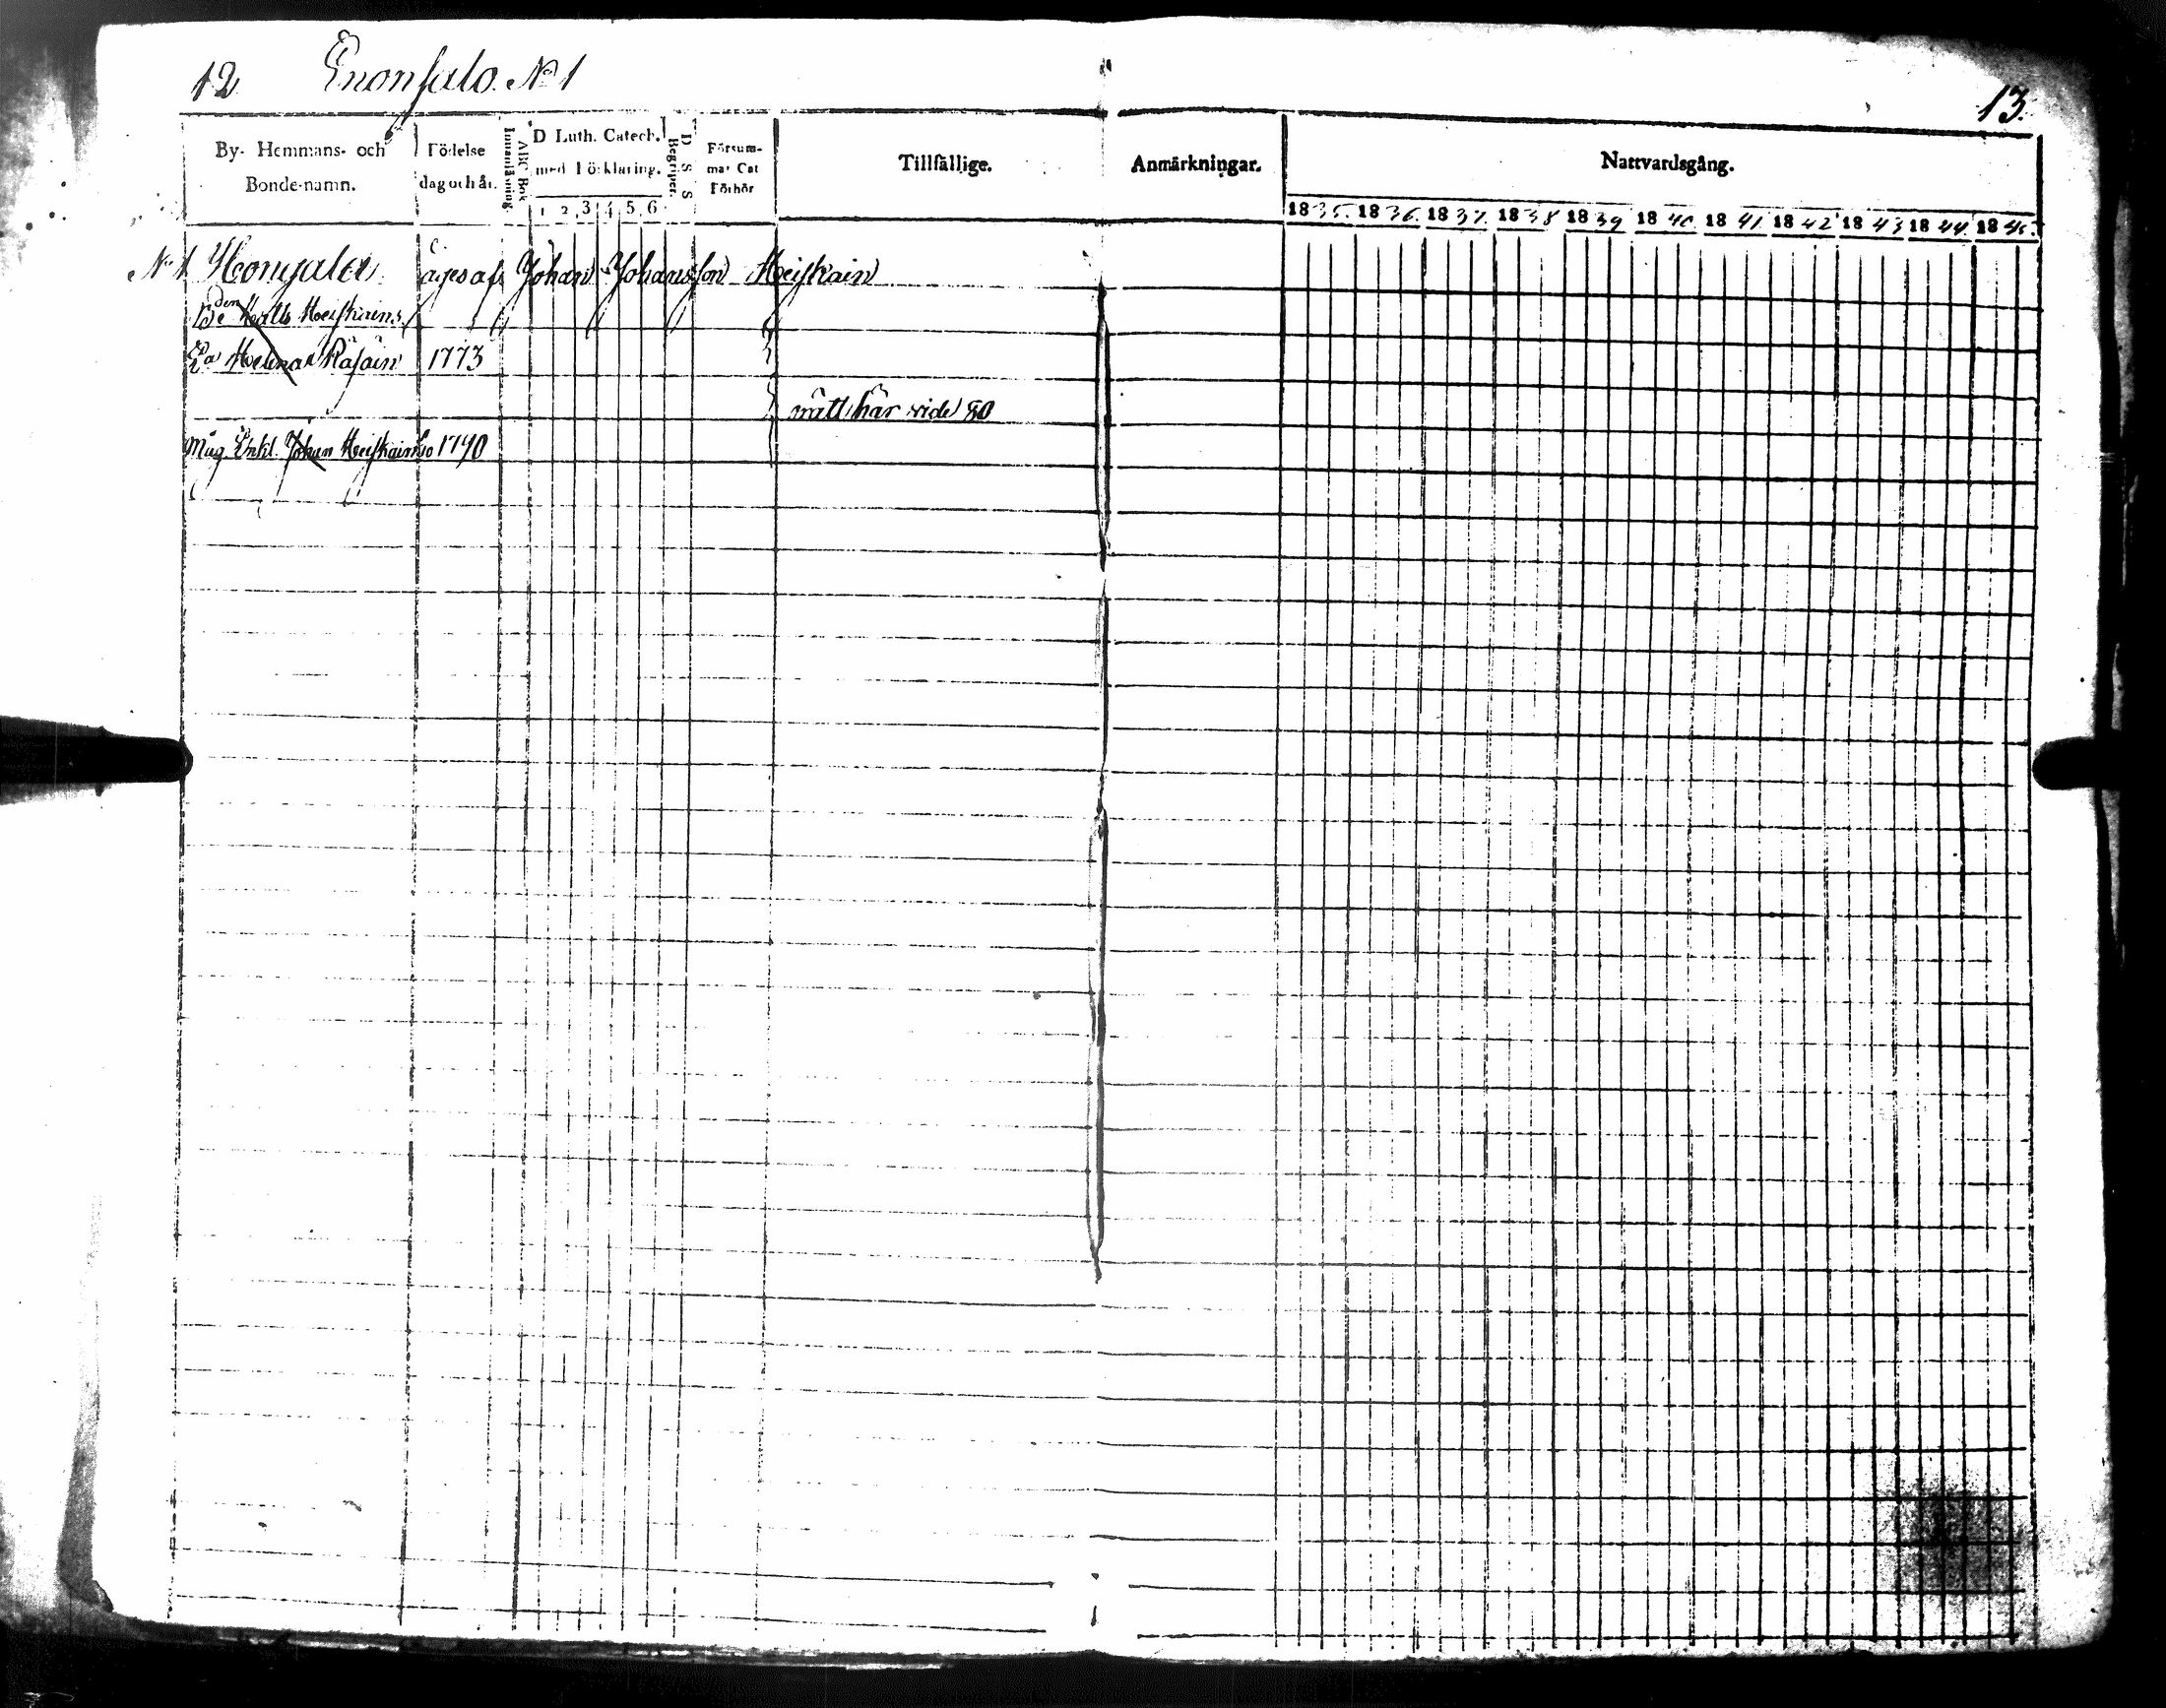 12 Enonsalo. No 1
13.
By- Hemmans- och Bonde-namn.
Födelse dag och år.
Innanläsning.
ABC Bok
D Luth. Catech. med Förklaring.
1 2 3 4 5 6
D S S Begriper.
Försummat Cat Förhör
Tillfällige.
Anmärkningar.
Nattvardsgång.
1835. 1836. 1837. 1838 1839 1840 1841 1842 1843 1844 1845.
No 1 Honjalax äges af Johan Johansson Heiskain
Matts Heiskains
Helena Räsäin 1773
rätt här vide 50
Måg Enkl. Johan Heiskain 1790